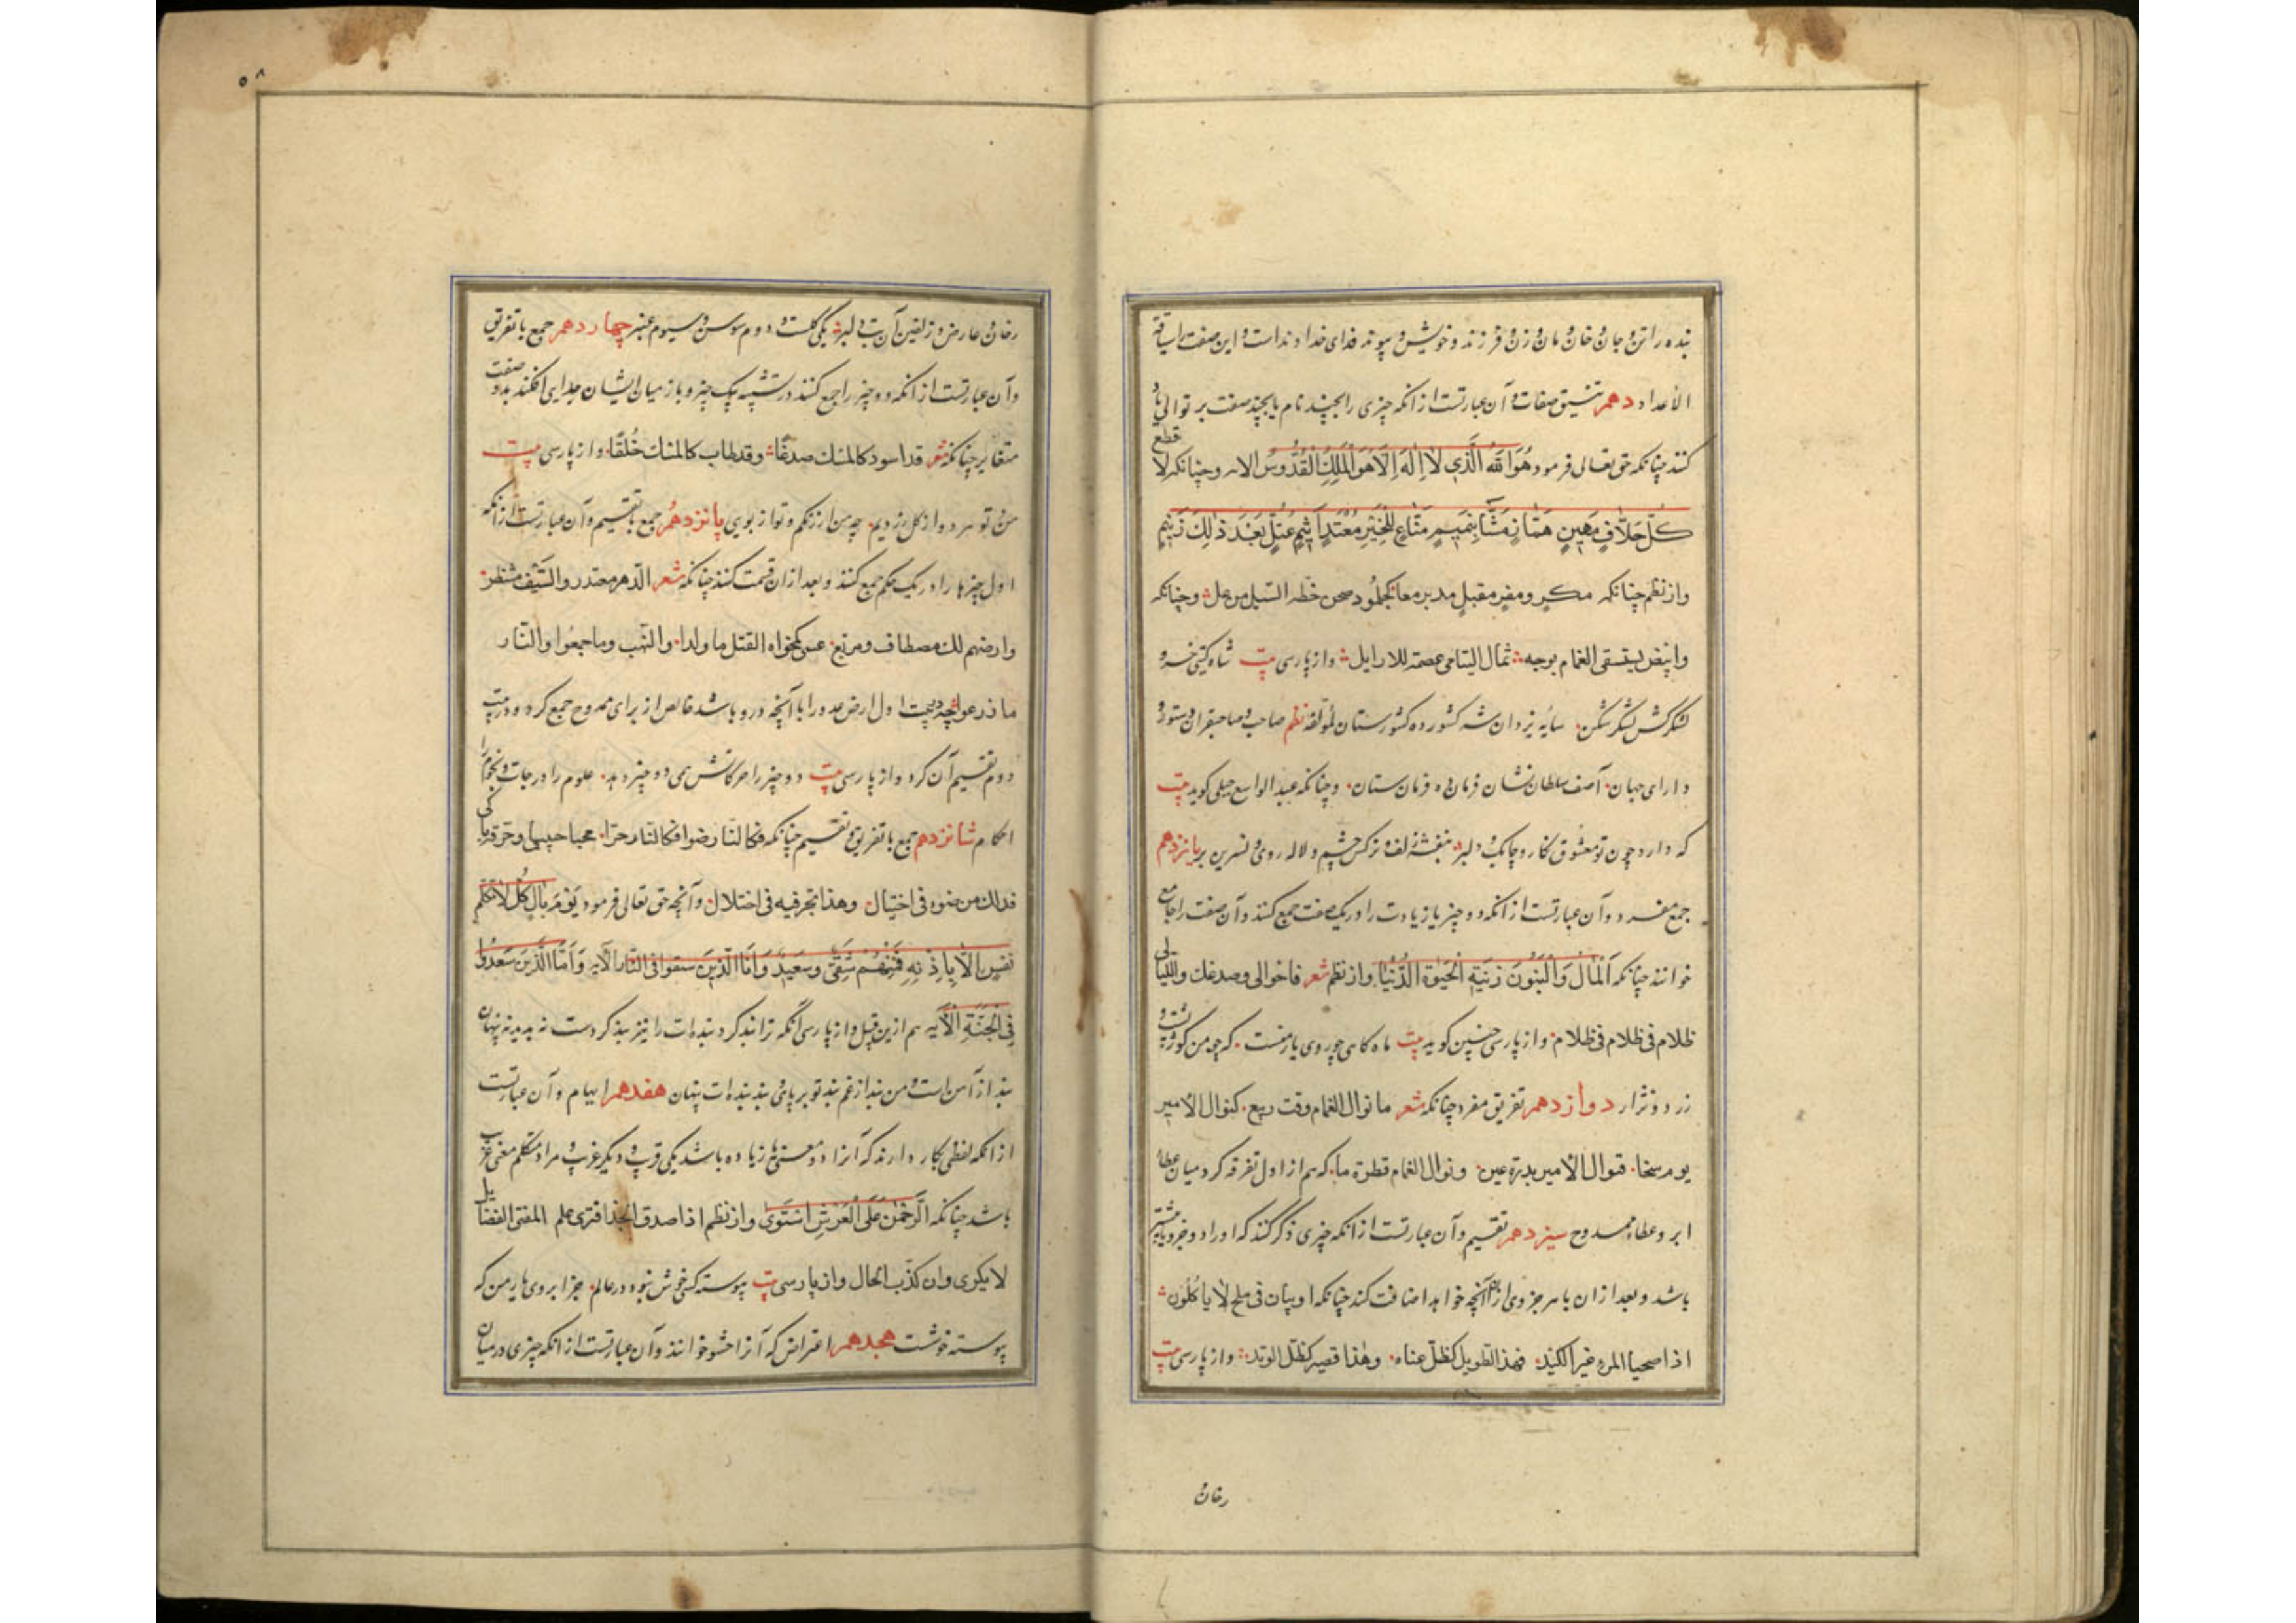 بنده را تن و جان و خان و مان و زن و فرزند و خویش و پیوند فدای خداوند است و این صفت را سیاقة
الأعداد دهم تنسیق صفات و آن عبارتست از انکه چیزی را بچند نام یا بچند صفت بر توالی یاد
کنند چنانکه حق تعالی فرمود هُوَ اللهُ الَّذِی لَا اِلٰهَ اِلَّا هُوَ الْمَلِكُ الْقُدُّوسُ الایه و چنانکه لا تطع
كُلَّ حَلَّافٍ مَهِینٍ هَمَّازٍ مَشَّاءٍ بِنَمِیمٍ مَنَّاعٍ لِلْخَیْرِ مُعْتَدٍ اَثِیمٍ عُتُلٍّ بَعْدَ ذٰلِكَ زَنِیمٍ
و از نظم چنانکه مکر ومفر مقبل مدبر معا کجلمود صخر حطه السیل من عل و چنانکه
وابیض یستسقی الغمام بوجهه ثمال الیتامی عصمة للارامل و از پارسی بیت شاه کیتی خسرو
لشکرکش لشکرشکن سایه یزدان شه کشورده کشورستان لمؤلفه نظم صاحب صاحبقران دستور
دارای جهان آصف سلطان نشان فرمان ده فرمان ستان و چنانکه عبد الواسع جبلی کوید بیت
که دارد چون تو معشوق نکار و چابک و دلبر بنفشه زلف و نرکس چشم و لاله روی و نسرین بر یازدهم
جمع مفرد و آن عبارتست از انکه دو چیز یا زیادت را در یک صفت جمع کنند و آن صفت را جامع
خوانند چنانکه اَلْمَالُ وَالْبَنُونَ زِینَةُ الْحَیٰوةِ الدُّنْیَا و از نظم شعر فاحوالی وصدغك واللیالی
ظلام فی ظلام فی ظلام و از پارسی چنین کوید بیت ماه کاهی چو روی یار منست که چو من کوژپشت و
زرد و نزار دوازدهم تفریق مفرد چنانکه شعر ما نوال الغمام وقت ربیع کنوال الامیر
یوم سخا فنوال الامیر بدرة عین ونوال الغمام قطرة ما که هم از اول تفرقه کرد میان عطاء
ابر و عطاء ممدوح سیزدهم تقسیم و آن عبارتست از انکه چیزی ذکر کنند که او را دو جزو یا بیشتر
باشد و بعد از ان با هر جزوی از ان آنچه خواهد اضافت کند چنانکه ادیبان فی بلخ لا یاکلون
اذا صحبا المرء غیر الکبد فهذا الطویل کظل القناة وهذا قصیر کظل الوتد و از پارسی بیت
رخان و
۵۸
رخان و عارض و زلفین آن بت دلبر یکی کلست و دوم سوسن و سیوم عنبر چهاردهم جمع با تفریق
و آن عبارتست از انکه دو چیز را جمع کنند در تشبیه بیک چیز و باز میان ایشان جدایی افکنند بدو صفت
متغایر چنانکه شعر قد اسود کالمسك صدغا وقد طاب کالمسك خلقا و از پارسی بیت
من و تو هر دو از کل زردیم چه من از رنکم و تو از بویی پانزدهم جمع با تقسیم و آن عبارتست از انکه
اول چیزها را در یک حکم جمع کنند و بعد از ان قسمت کنند چنانکه شعر الدهر معتذر والسیف منتظر
وارضهم لك مصطاف ومرتبع للسبی ما نکحوا والقتل ما ولدوا والنهب وما جمعوا والنار
ما زرعوا در بیت اول ارض عدو را با آنچه درو باشد خالص از برای ممدوح جمع کرد و در بیت
دوم تقسیم آن کرد و از پارسی بیت دو چیز را حرکاتش همی دو چیز دهد علوم را درجات و نجوم را
احکام شانزدهم جمع با تفریق و تقسیم چنانکه فکالنار ضوءا وکالنار حرا محیا حبیبی وحرقة بالی
فذلك من ضوئه فی اختیال وهذا بحرقته فی اختلال و آنچه حق تعالی فرمود یَوْمَ یَأْتِ لَا تَكَلَّمُ
نَفْسٌ اِلَّا بِاِذْنِهِ فَمِنْهُمْ شَقِیٌّ وَسَعِیدٌ فَاَمَّا الَّذِینَ شَقُوا فَفِی النَّارِ الایه وَاَمَّا الَّذِینَ سُعِدُوا
فَفِی الْجَنَّةِ الایه هم ازین قبیل و از پارسی آنکه ترا بند کرد بنده‌ات را نیز بند کردست نه پدید نه پنهان
بند از آهن است و من بند از غم بند تو بر پای و بند بنده‌ات پنهان هفدهم ایهام و آن عبارتست
از انکه لفظی بکار دارند که آنرا دو معنی یا زیاده باشد یکی قریب و دیکر غریب و مراد متکلم معنی غریب
باشد چنانکه اَلرَّحْمٰنُ عَلَی الْعَرْشِ اسْتَوٰی و از نظم اذا صدق الجد افتری العم للفتی الفضایل
لا یکری وان کذب الحال و از پارسی بیت پیوسته کسی خوش نبود در عالم جز ابروی یار من که
پیوسته خوشست هجدهم اعتراض که آنرا حشو خوانند و آن عبارتست از انکه چیزی در میان